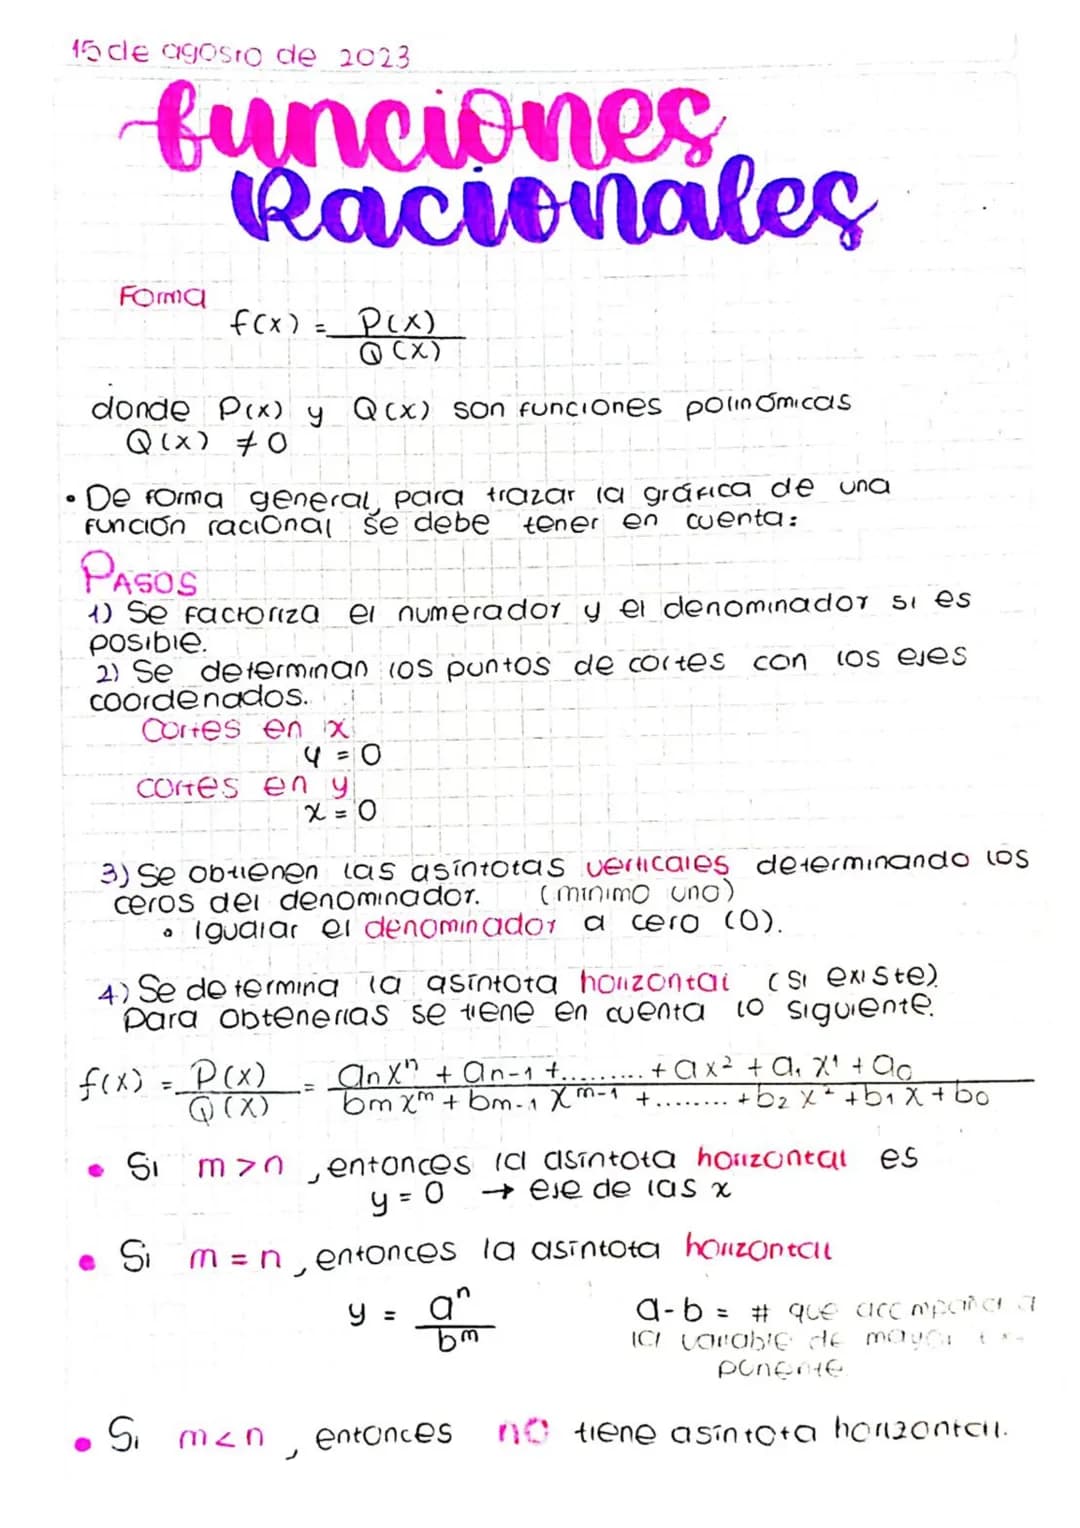 15 de agosto de 2023
funciones
Racionales
Forma
f(x) = P(x)
Q(x)
donde P(x) y Q(x) son funciones polinómicas
Q(x) ≠ 0
• De forma general, para trazar la gráfica de una
función racional se debe tener en cuenta:
PASOS
1) Se factoriza el numerador y el denominador si es
posible.
2) Se determinan los puntos de cortes con los ejes
coordenados.
Cortes en x
y = 0
cortes en y
x = 0
3) Se obtienen las asíntotas verticales determinando los
ceros del denominador. (minimo uno)
• Igualar el denominador a cero (0).
4) Se determina la asíntota horizontal (si existe)
Para obtenerlas se tiene en cuenta lo siguiente.
f(x) = P(x) = anxⁿ + an-1 +......... + ax² + a₁ x¹ + a₀
Q(x) bm xᵐ + bm-1 xᵐ⁻¹ +........ + b₂ x² + b₁ x + b₀
• Si m > n, entonces la asíntota horizontal es
y = 0 → eje de las x
• Si m = n, entonces la asíntota horizontal
y = aⁿ
bᵐ
a-b = # que accmpaña a
la variable de mayor ex-
ponente
• Si m < n, entonces no tiene asíntota horizontal.